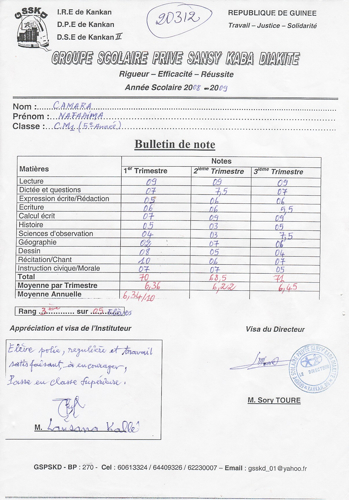 20312
GSSKD
I.R.E de Kankan
D.P.E de Kankan
D.S.E de Kankan II
REPUBLIQUE DE GUINEE
Travail – Justice – Solidarité
GROUPE SCOLAIRE PRIVE SANSY KABA DIAKITE
Rigueur – Efficacité – Réussite
Année Scolaire 2008 – 2009
Nom : CAMARA
Prénom : NAFANMA
Classe : CM1 (5e Année)
Bulletin de note
Matières Notes
1er Trimestre 2ième Trimestre 3ième Trimestre
Lecture 09 09 09
Dictée et questions 07 7,5 07
Expression écrite/Rédaction 05 06 06
Ecriture 06 06 5,5
Calcul écrit 07 09 09
Histoire 05 03 05
Sciences d'observation 04 03 7,5
Géographie 02 07 06
Dessin 08 05 04
Récitation/Chant 10 06 07
Instruction civique/Morale 07 07 05
Total 70 68,5 71
Moyenne par Trimestre 6,36 6,22 6,45
Moyenne Annuelle 6,34/10
Rang sur élèves
Appréciation et visa de l'Instituteur
Visa du Directeur
Elève polie, regulière et travail
satisfaisant, à encourager,
Passe en classe Supérieure.
M. Kallé
M. Sory TOURE
GSPSKD - BP : 270 - Cel : 60613324 / 64409326 / 62230007 – Email : gsskd_01@yahoo.fr